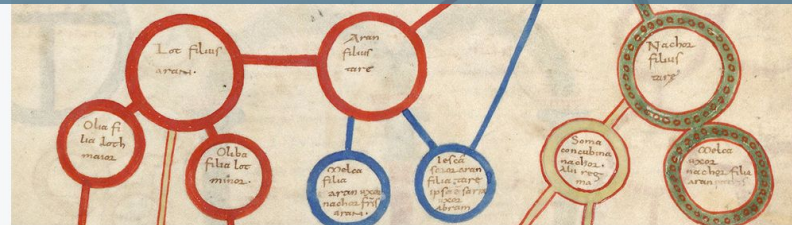 Lot filius
aran.
Aran
filius
tare
Nachor
filius
tare
Olia fi
lia loth
maior
Oliba
filia lot
minor.
Melca
filia
aran uxor
nachor fris
aram.
Iesca
soror aran
filia tare
ipsa e sara
uxor
abram
Soma
concubina
nachor.
ma
Melca
uxor
nachor filia
aran